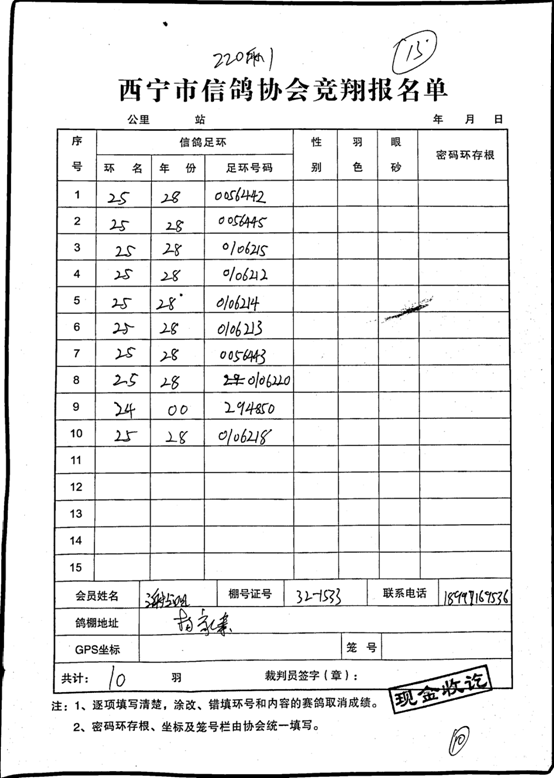 13
西宁市信鸽协会竞翔报名单
公里 站 年 月 日
序号 信鸽足环 性别 羽色 眼砂 密码环存根
环 名 年 份 足环号码
1 25 28 0056442
2 25 28 0056445
3 25 28 0106215
4 25 28 0106212
5 25 28 0106214
6 25 28 0106213
7 25 28 0056443
8 25 28 0106220
9 24 00 294850
10 25 28 0106218
11
12
13
14
15
会员姓名 棚号证号 32-1533 联系电话
鸽棚地址
GPS坐标 笼 号
共计： 10 羽 裁判员签字（章）：
现金收讫
注：1、逐项填写清楚，涂改、错填环号和内容的赛鸽取消成绩。
2、密码环存根、坐标及笼号栏由协会统一填写。
10